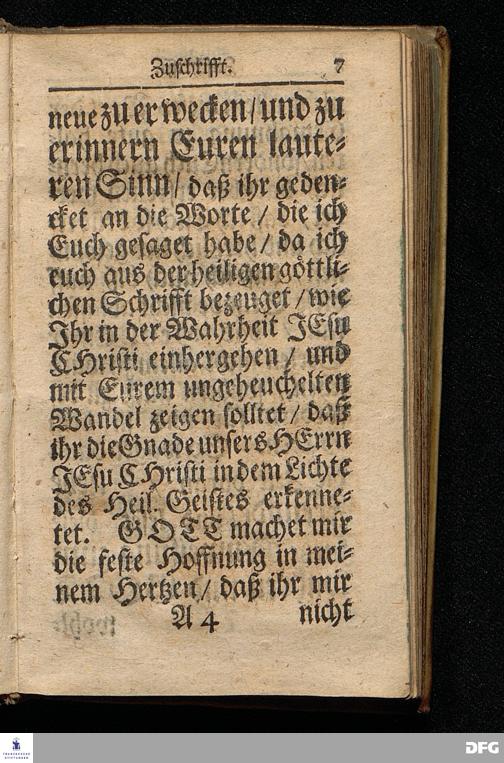 Zuschrifft. 7
neue zu erwecken / und zu
erinnern Euren laute-
ren Sinn / daß ihr geden-
cket an die Worte / die ich
Euch gesaget habe / da ich
euch aus der heiligen göttli-
chen Schrifft bezeuget / wie
Ihr in der Wahrheit JEsu
CHristi einhergehen / und
mit Eurem ungeheuchelten
Wandel zeigen solltet / daß
ihr die Gnade unsers HErrn
JEsu CHristi in dem Lichte
des Heil. Geistes erkenne-
tet. GOTT machet mir
die feste Hoffnung in mei-
nem Hertzen / daß ihr mir
A 4 nicht
FRANCKESCHE STIFTUNGEN
DFG